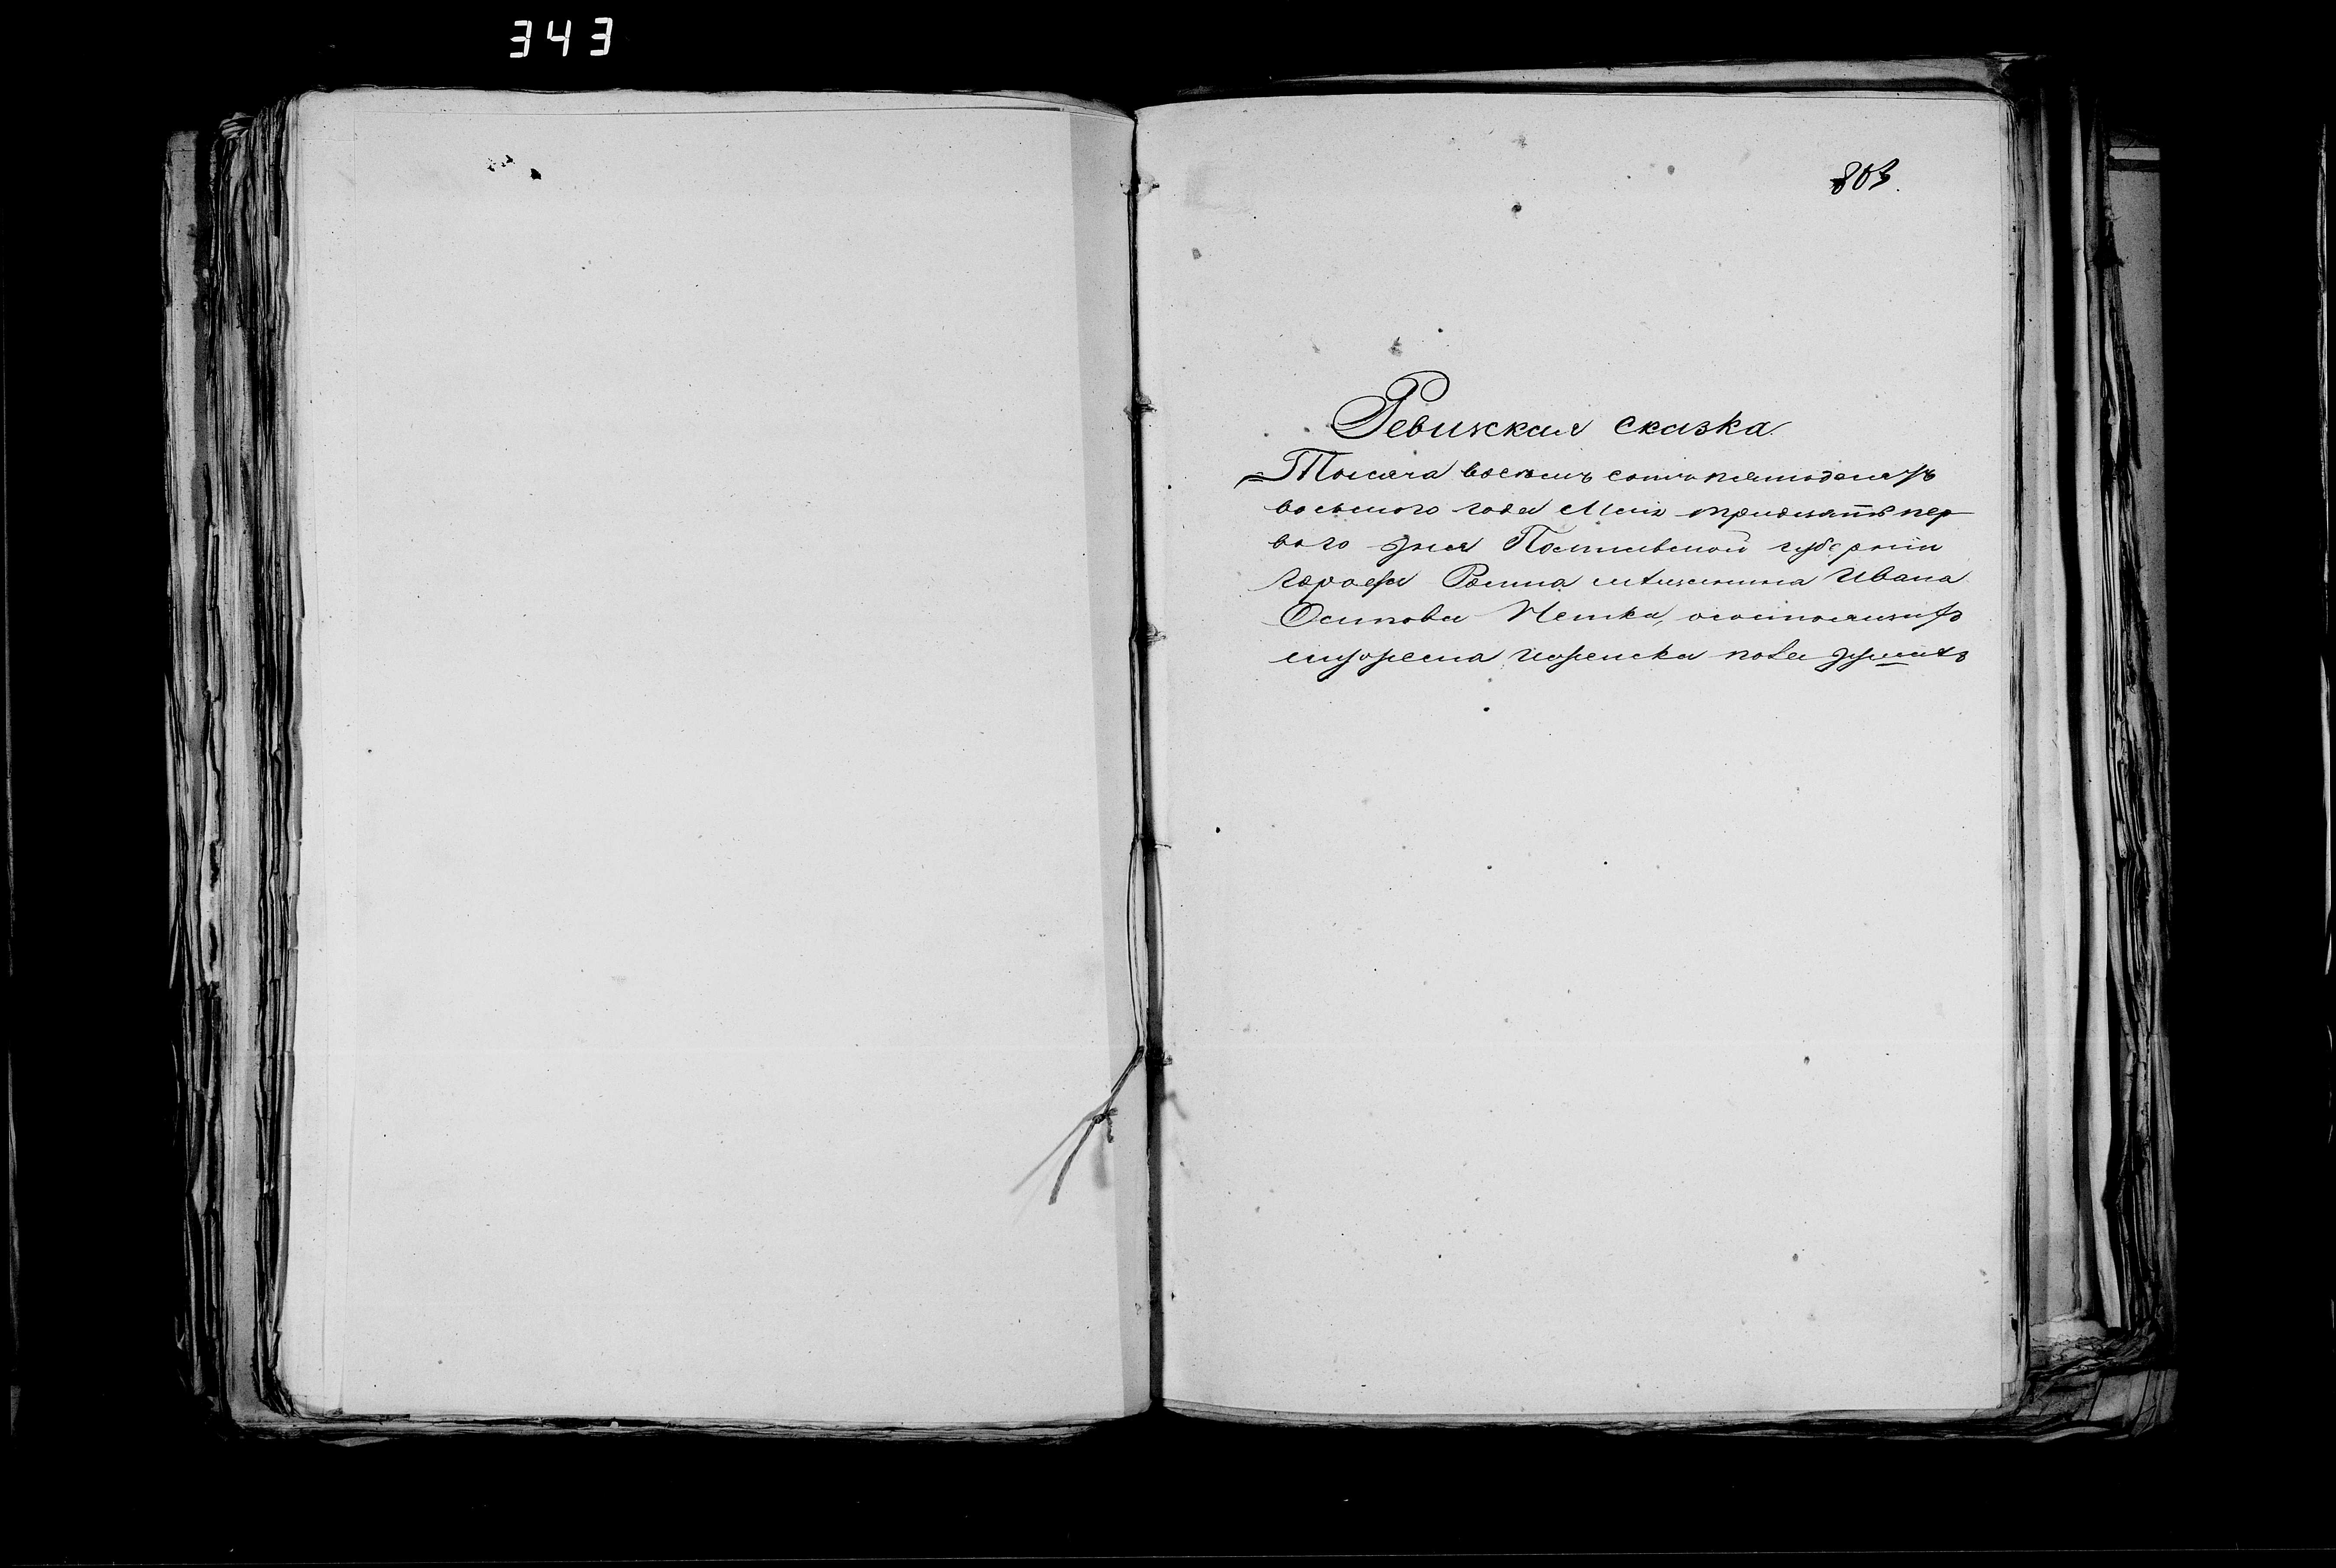 343
803.
Ревизская сказка.
Тысяча восемь сотъ пятьдесятъ
восьмого года Мая тридцать пер
вого дня Полтавской губерніи
города Ромна мѣщанина Ивана
Осипова о состоящихъ
мужеска женска пола душахъ